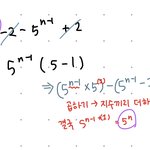 -2 - 5^{n-1} + 2
5^{n-1} (5-1)
⇒ (5^{n-1} × 5^{(1)}) - (5^{n-1} -
곱하기 → 지수끼리 더하
결국 5^{n-1+(1)} = 5^n